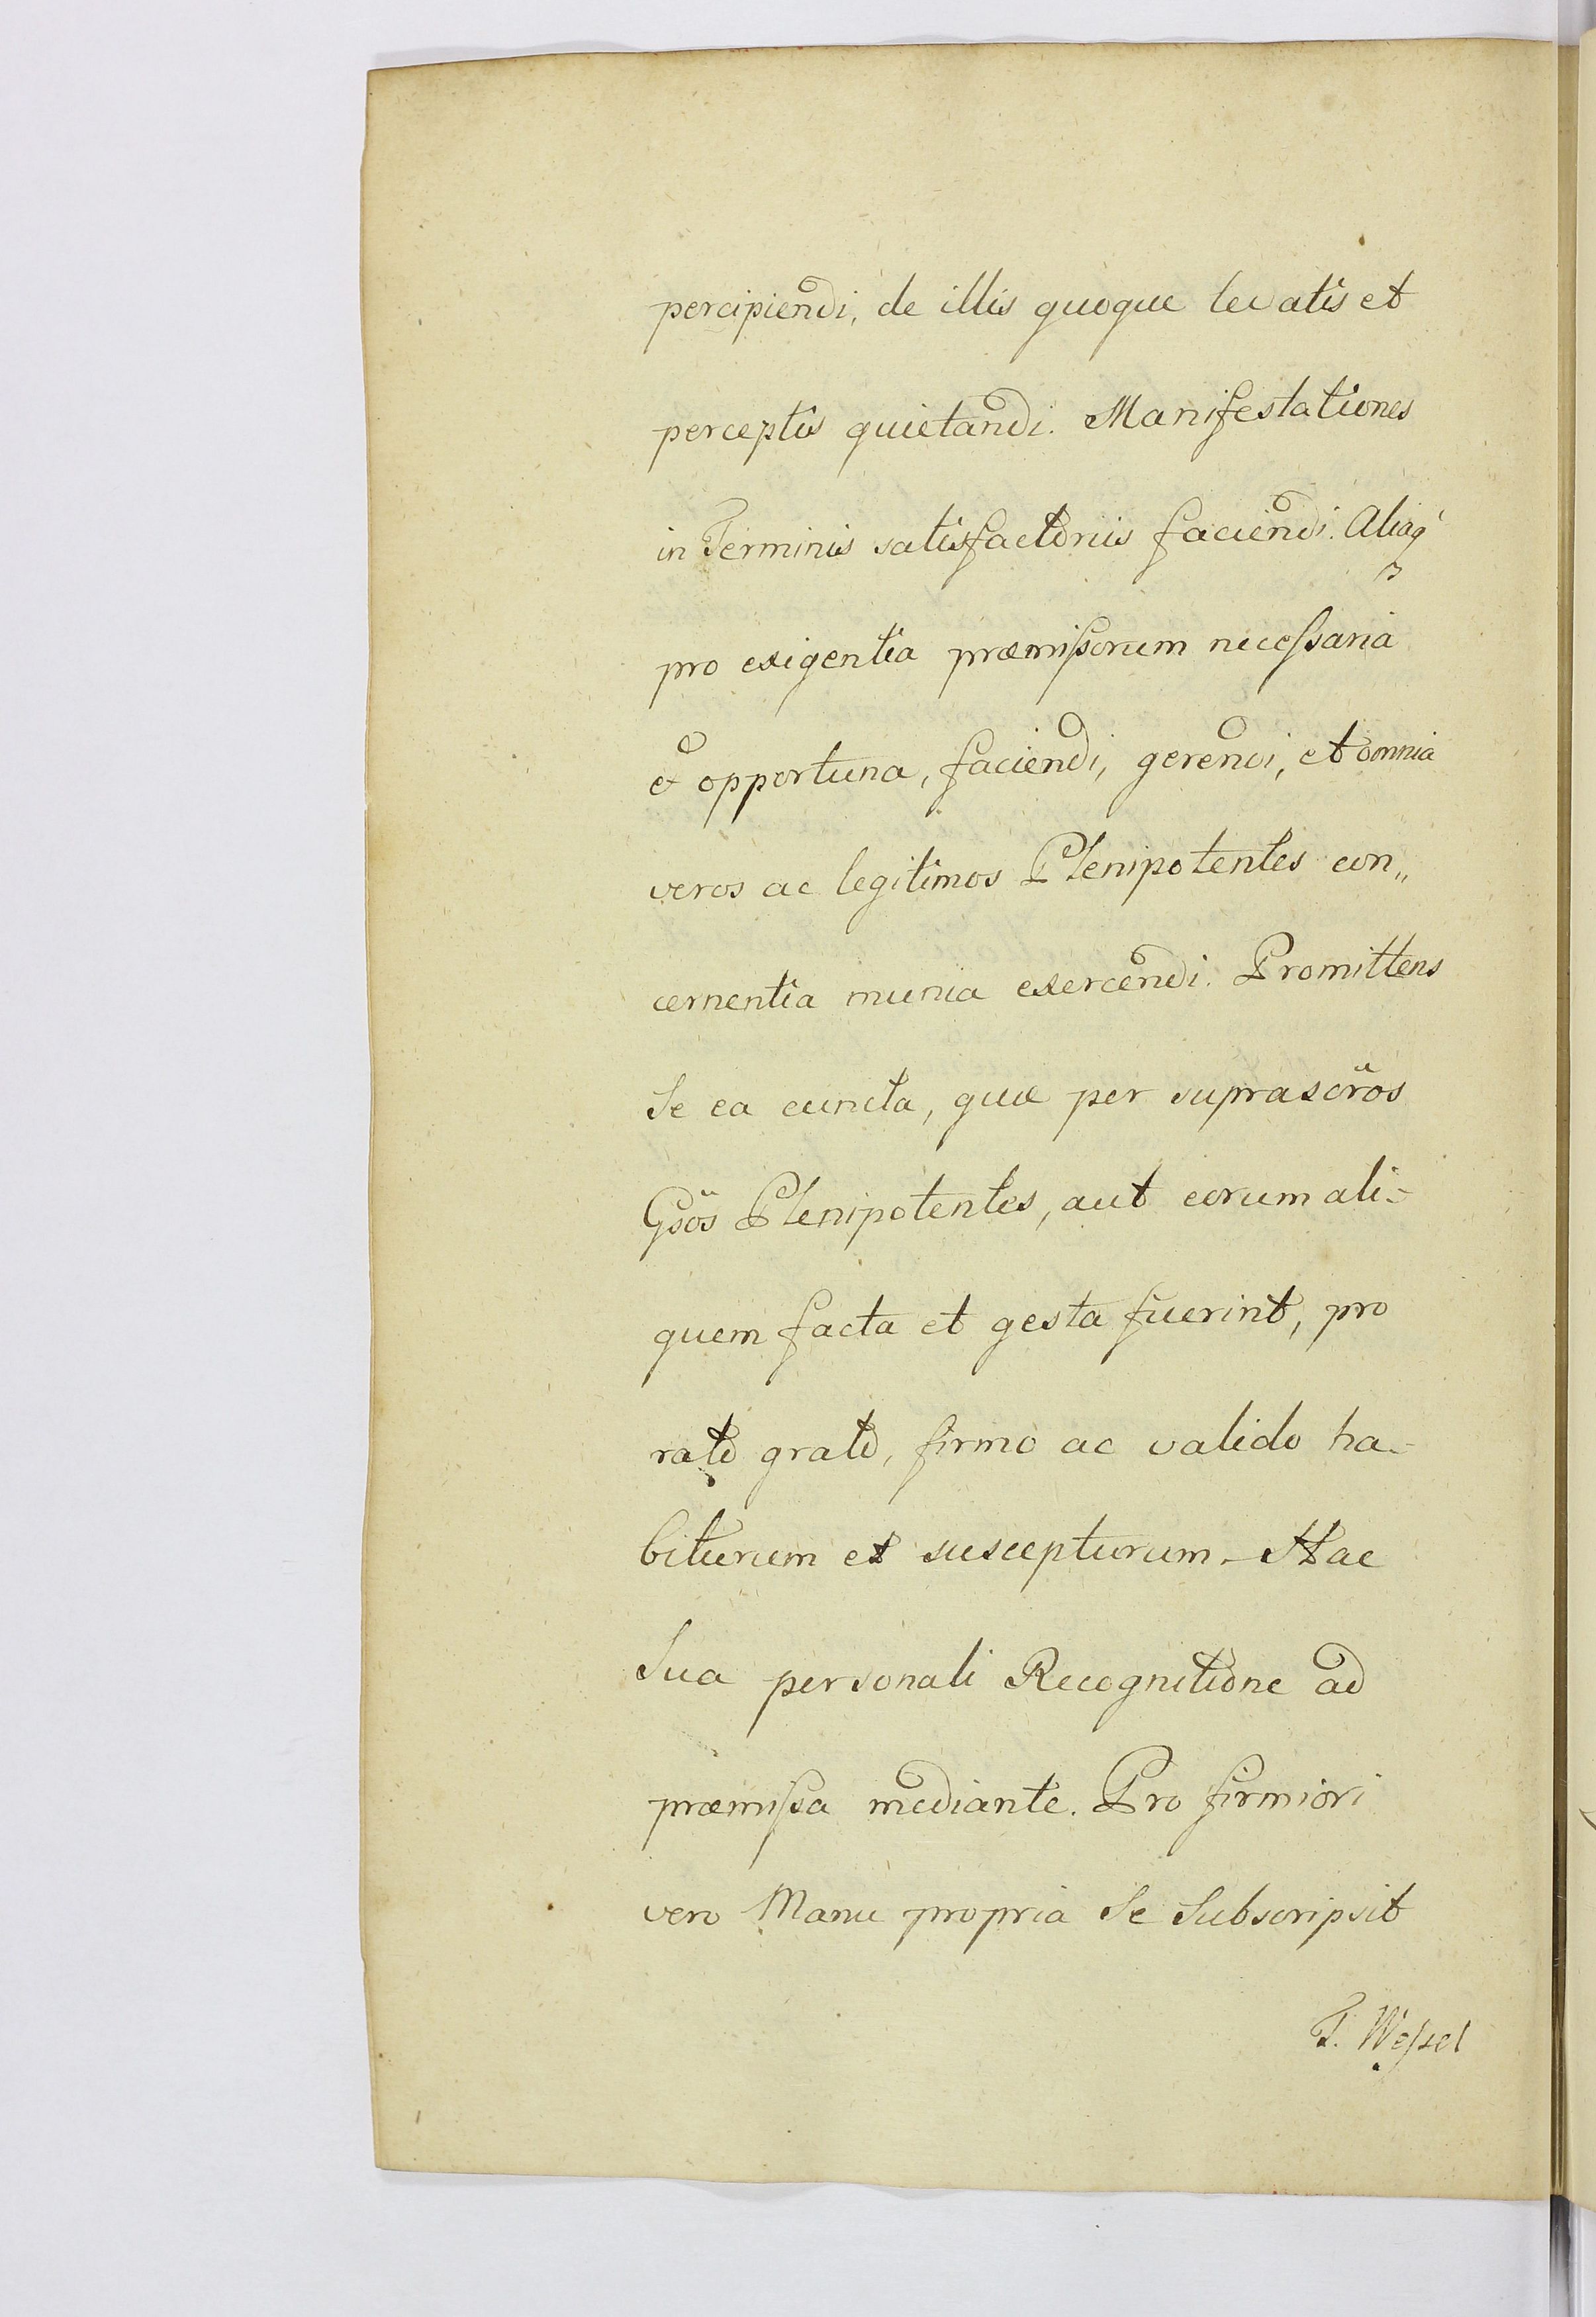 percipiendi, de illis quoque levatis et
perceptis quietandi. Manifestationes
in Terminis satisfactoriis faciendi. Aliaq́
pro exigentia præmiſsorum neceſsaria
et opportuna, faciendi, gerendi, et omnia
veros ac legitimos Plenipotentes con„
cernentia munia exercendi. Promittens
Se ea cuncta, quæ per suprascr̃os
Gsõs Plenipotentes, aut eorum ali=
quem facta et gesta fuerint, pro
rato grato, firmo ac valido ha-
biturum et suscepturum - Hac
Sua personali Recognitione ad
præmiſsa mediante. Pro firmiori
vero Manu propria Se Subscripsit
T. Weſsel